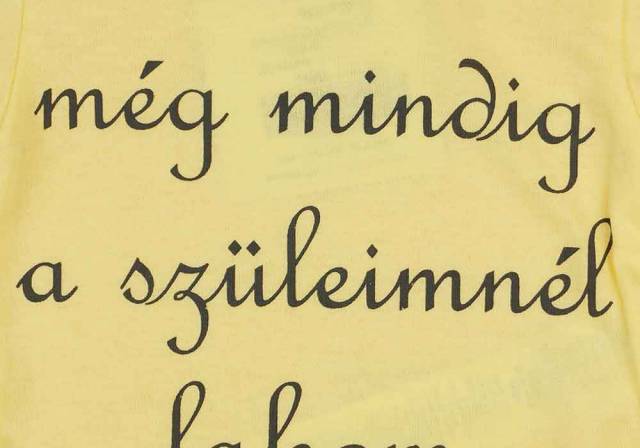 még mindig
a szüleimnél